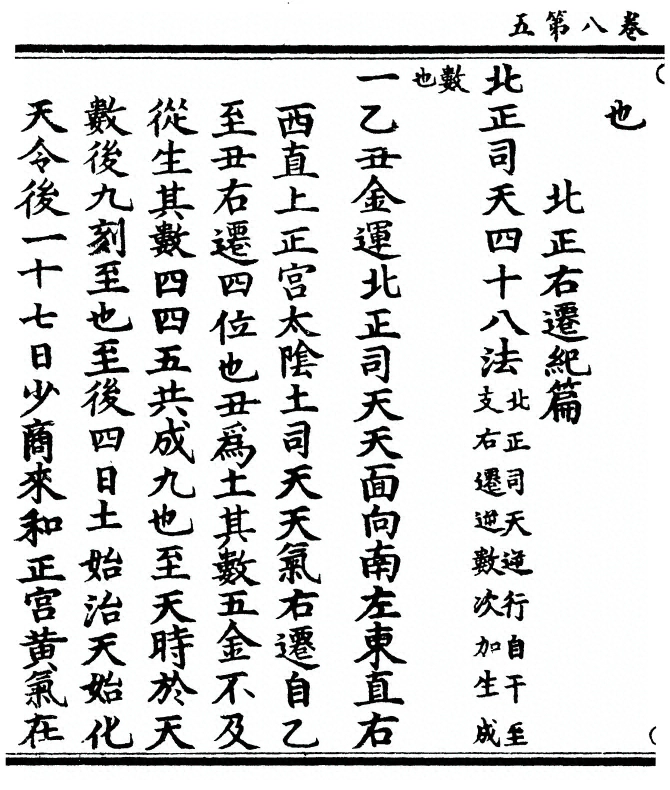 卷八第五
也
北正右遷紀篇
北正司天四十八法北正司天逆行自干至
支右遷逆數次加生成
數
也
一乙丑金運北正司天天面向南左東直右
西直上正宮太陰土司天天氣右遷自乙
至丑右遷四位也丑爲土其數五金不及
從生其數四四五共成九也至天時於天
數後九刻至也至後四日土始治天始化
天令後一十七日少商來和正宮黃氣在